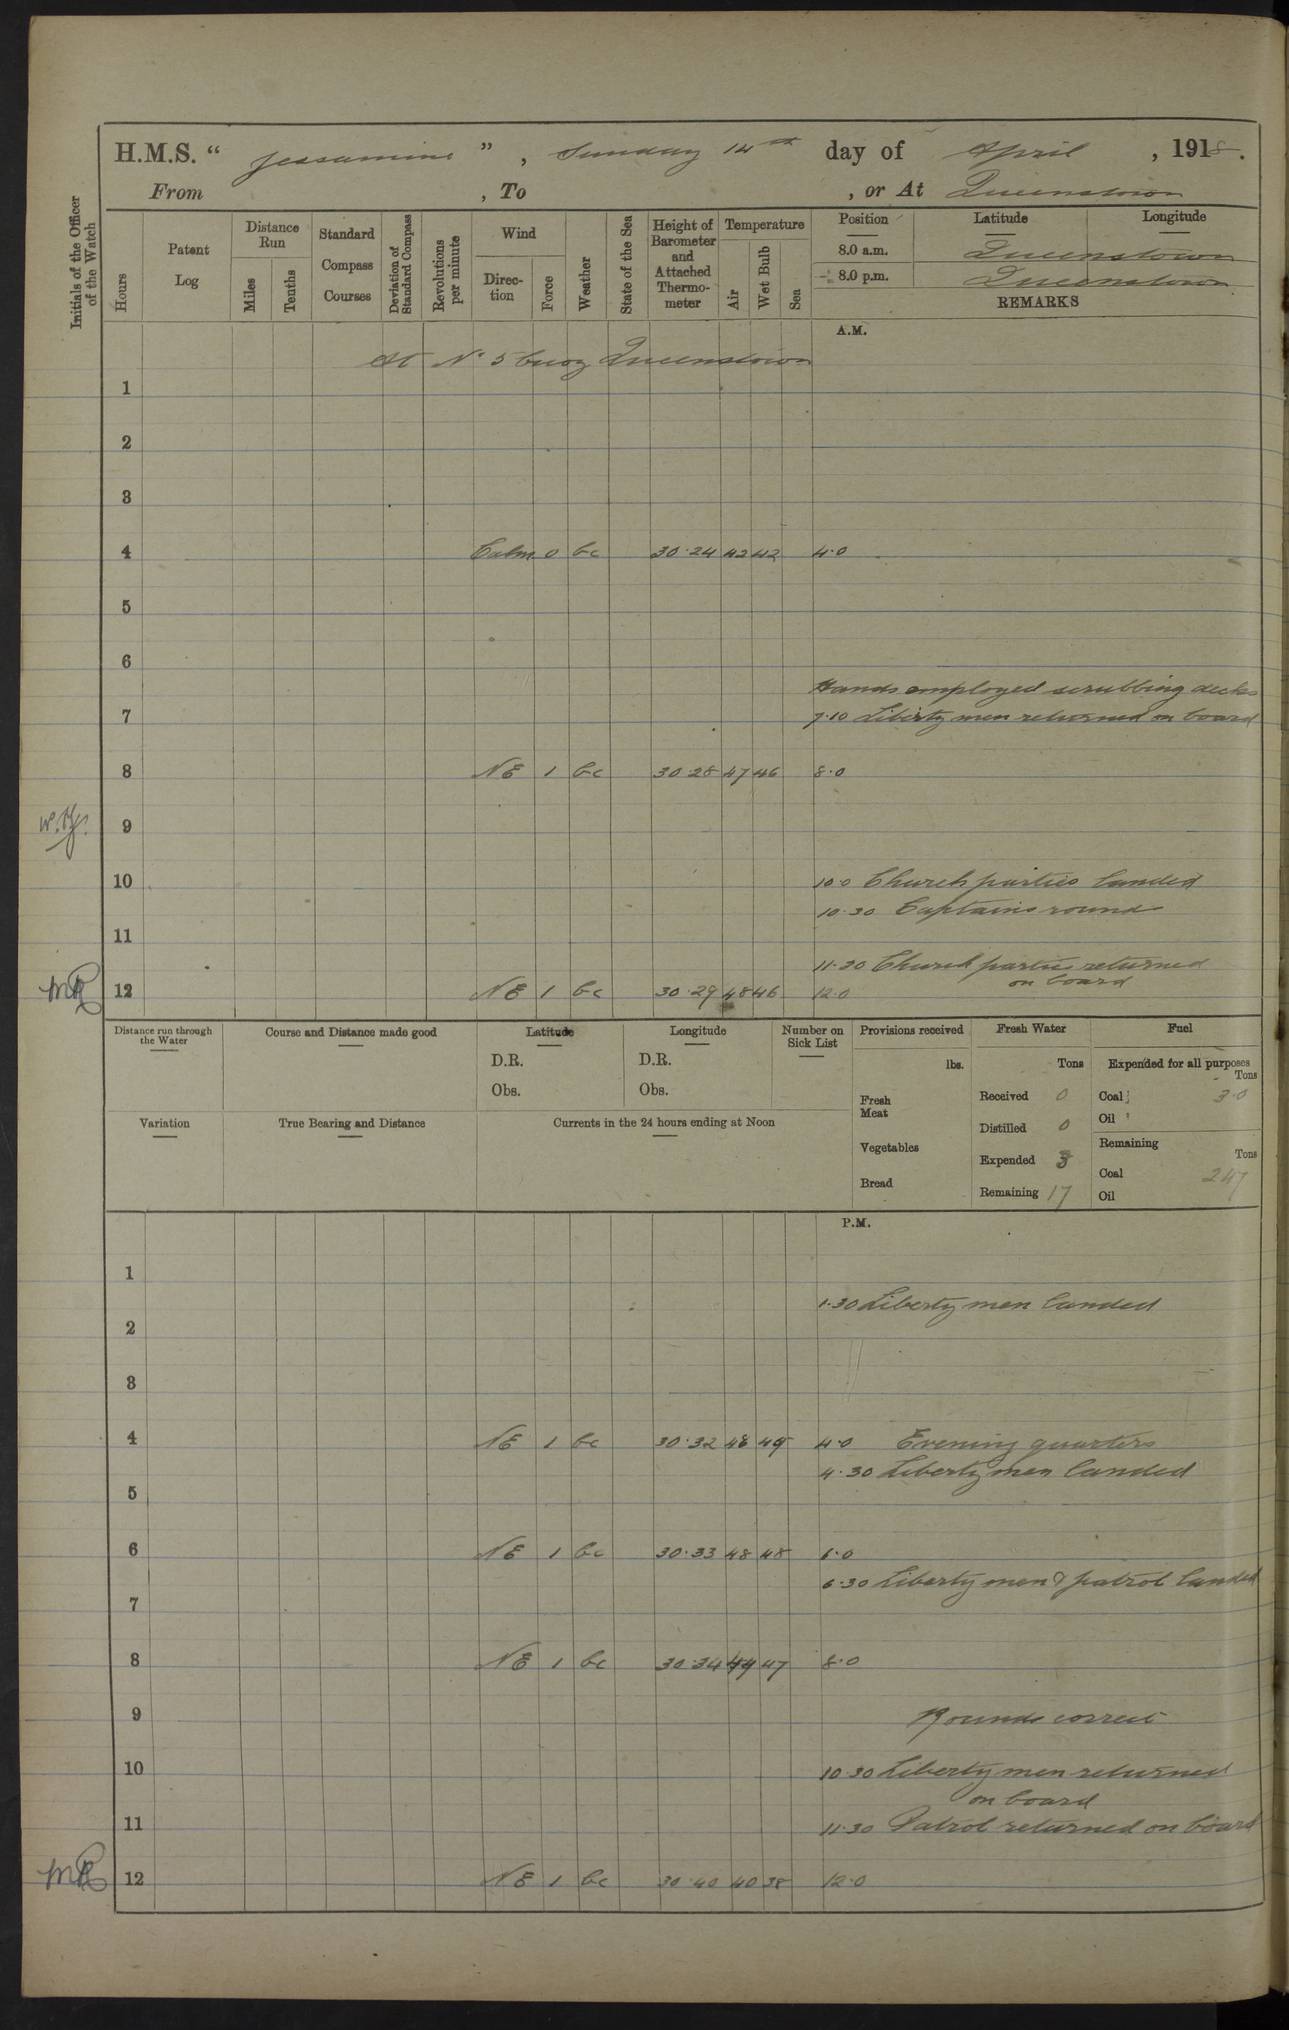 H.M.S. “ Jessamine ” , Sunday 14th day of April , 1918.
From , To , or At Queenstown
Initials of the Officer of the Watch
Hours
Patent Log
Distance Run
Miles
Tenths
Standard Compass Courses
Deviation of Standard Compass
Revolutions per minute
Wind
Direction
Force
Weather
State of the Sea
Height of Barometer and Attached Thermometer
Temperature
Air
Wet Bulb
Sea
Position Latitude Longitude
8.0 a.m. Queenstown
8.0 p.m. Queenstown
REMARKS
A.M.
At No 5 buoy Queenstown
1
2
3
4 Calm 0 bc 30.24 42 42 4.0
5
6
Hands employed scrubbing decks
7 7.10 Liberty men returned on board
8 NE 1 bc 30.28 47 46 8.0
9
10 10.0 Church parties landed
10.30 Captains round
11
11.30 Church partie returned
on board
12 NE 1 bc 30.29 48 46 12.0
Distance run through the Water
Course and Distance made good
Latitude
D.R.
Obs.
Longitude
D.R.
Obs.
Number on Sick List
Provisions received
lbs.
Fresh Meat
Vegetables
Bread
Fresh Water
Tons
Received 0
Distilled 0
Expended 3
Remaining 17
Fuel
Expended for all purposes
Tons
Coal 3.0
Oil
Remaining
Tons
Coal 247
Oil
Variation
True Bearing and Distance
Currents in the 24 hours ending at Noon
P.M.
1
1.30 Liberty men landed
2
3
4 NE 1 bc 30.32 48 49 4.0 Evening quarters
4.30 Liberty men landed
5
6 NE 1 bc 30.33 48 48 6.0
6.30 Liberty men & patrol landed
7
8 NE 1 bc 30.34 49 47 8.0
9 Rounds correct
10 10.30 Liberty men returned
on board
11 11.30 Patrol returned on board
12 NE 1 bc 30.40 40 38 12.0